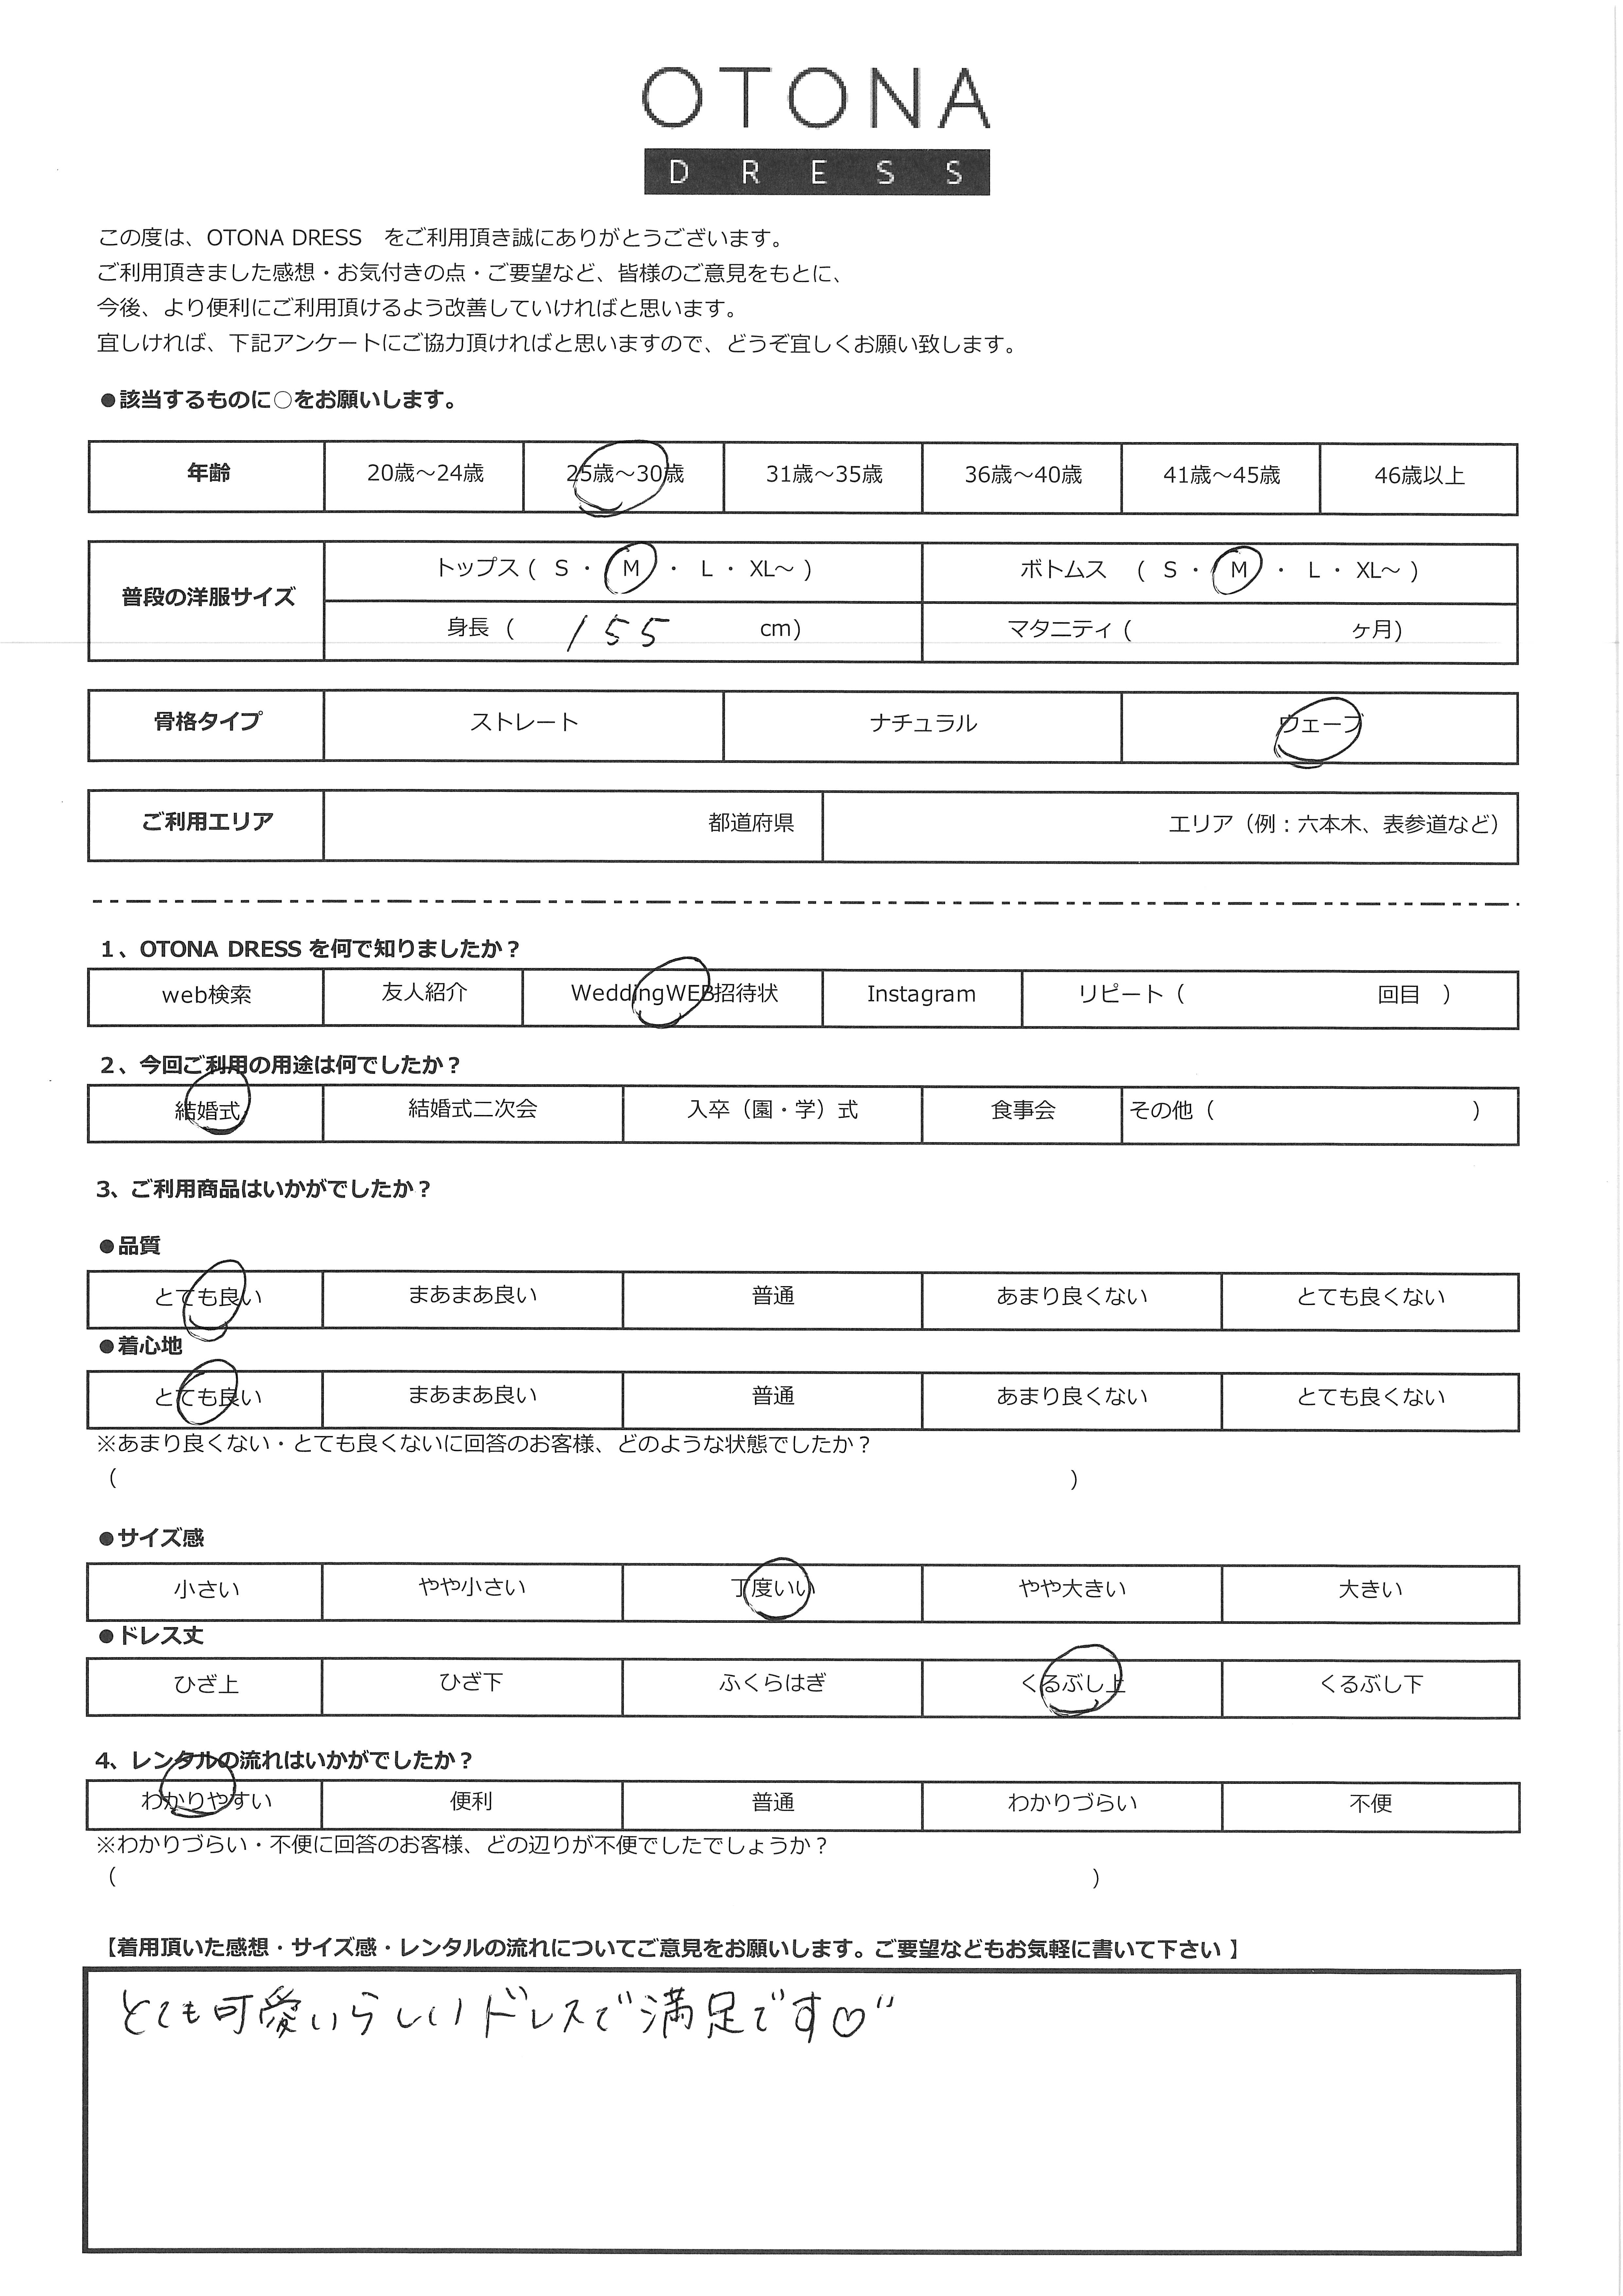 OTONA
DRESS
この度は、OTONA DRESS　をご利用頂き誠にありがとうございます。
ご利用頂きました感想・お気付きの点・ご要望など、皆様のご意見をもとに、
今後、より便利にご利用頂けるよう改善していければと思います。
宜しければ、下記アンケートにご協力頂ければと思いますので、どうぞ宜しくお願い致します。
●該当するものに○をお願いします。
年齢 20歳～24歳 25歳～30歳 31歳～35歳 36歳～40歳 41歳～45歳 46歳以上
普段の洋服サイズ トップス ( S ・ M ・ L ・ XL～ ) ボトムス ( S ・ M ・ L ・ XL～ )
身長 ( 155 cm) マタニティ ( ヶ月)
骨格タイプ ストレート ナチュラル ウェーブ
ご利用エリア 都道府県 エリア（例：六本木、表参道など）
1、OTONA DRESS を何で知りましたか？
web検索 友人紹介 WeddingWEB招待状 Instagram リピート（ 回目 ）
2、今回ご利用の用途は何でしたか？
結婚式 結婚式二次会 入卒（園・学）式 食事会 その他（ ）
3、ご利用商品はいかがでしたか？
●品質
とても良い まあまあ良い 普通 あまり良くない とても良くない
●着心地
とても良い まあまあ良い 普通 あまり良くない とても良くない
※あまり良くない・とても良くないに回答のお客様、どのような状態でしたか？
（ ）
●サイズ感
小さい やや小さい 丁度いい やや大きい 大きい
●ドレス丈
ひざ上 ひざ下 ふくらはぎ くるぶし上 くるぶし下
4、レンタルの流れはいかがでしたか？
わかりやすい 便利 普通 わかりづらい 不便
※わかりづらい・不便に回答のお客様、どの辺りが不便でしたでしょうか？
（ ）
【着用頂いた感想・サイズ感・レンタルの流れについてご意見をお願いします。ご要望などもお気軽に書いて下さい 】
とても可愛いらしいドレスで満足です♡"